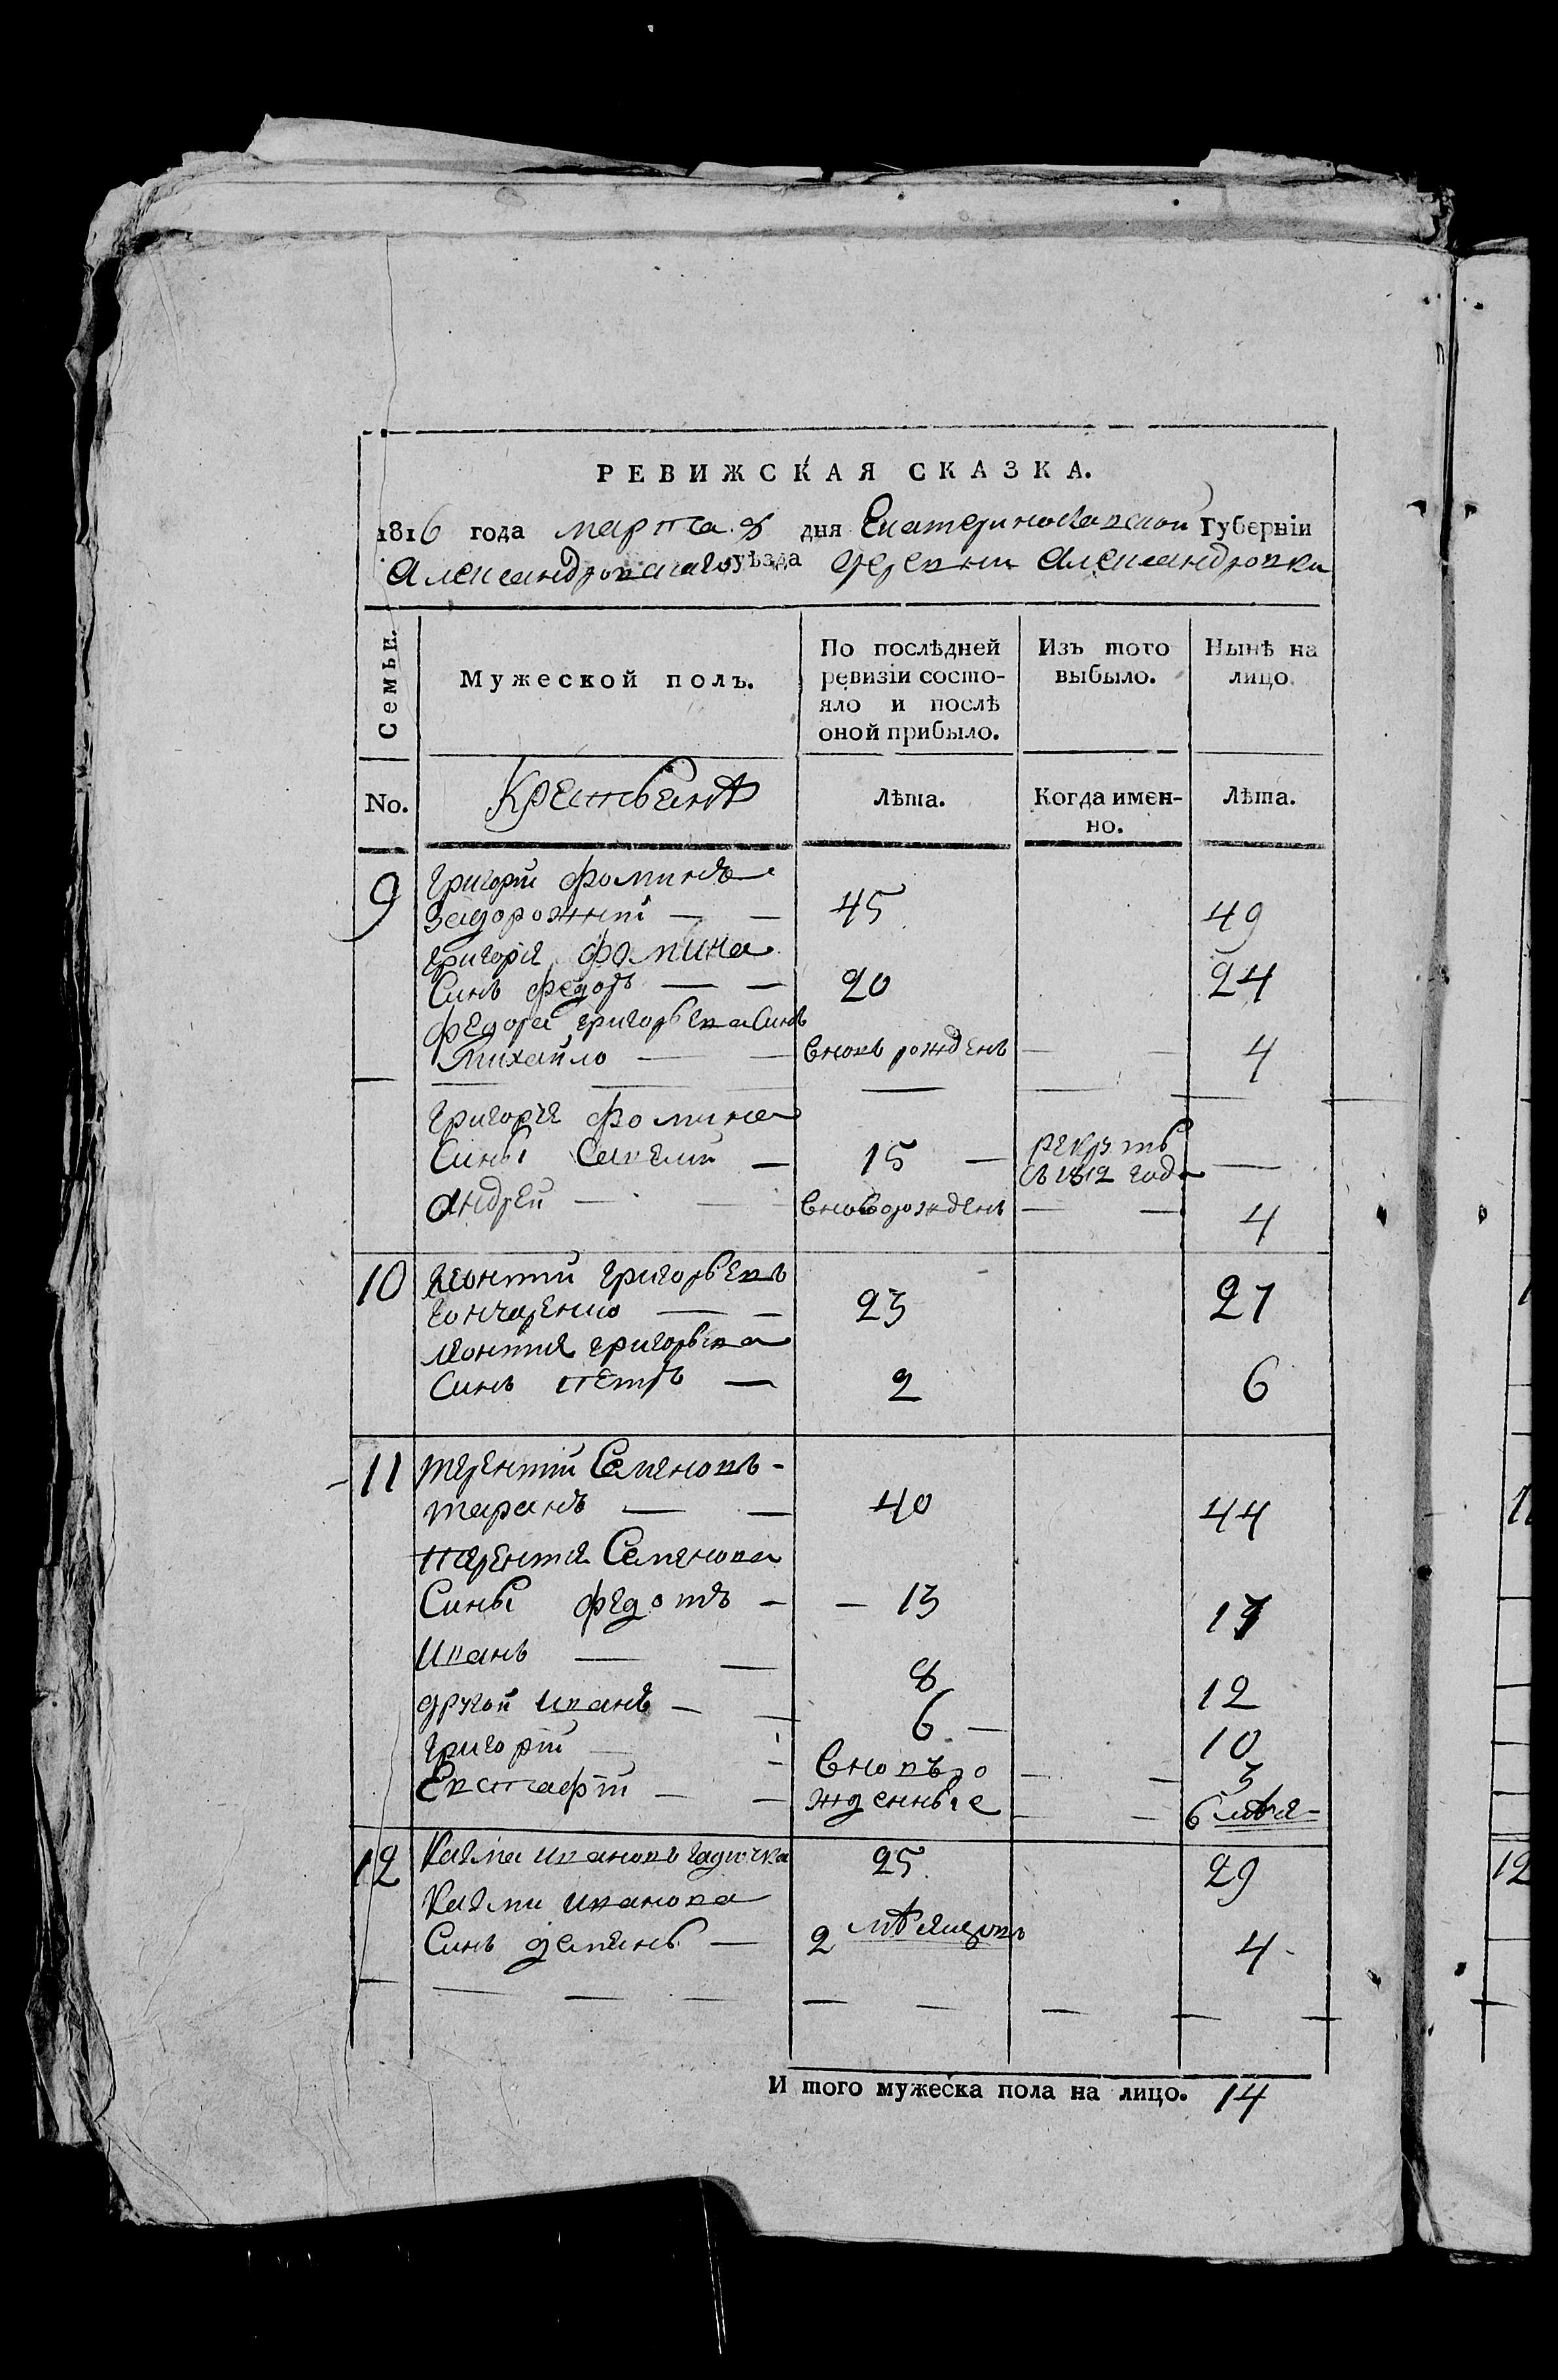 РЕВИЖСКАЯ СКАЗКА.
1816 года марта 8 дня Екатеринославской Губерніи
Александровскаго уѣзда деревни Александровки
Семьи.
Мужеской полъ.
По послѣдней
ревизіи состо-
яло и послѣ
оной прибыло.
Изъ того
выбыло.
Нынѣ на
лицо.
No.
Крестьянѣ
Лѣта.
Когда имен-
но.
Лѣта.
9 Григорій Фоминъ
Задорожній — — 45 49
Григорія Фомина
Синъ Федоръ — — 20 24
Федора Григорьева Синъ
Михайло — — вновь рожденъ — — 4
Григорія Фомина
Сины Савелій — 15 — рекрутъ
въ 1812 году —
Андрей — — вноворожденъ — — 4
10 Леонтій Григорьевъ
Гончаренко — — 23 27
Леонтія Григорьева
Синъ Петръ — 2 6
11 Терентій Семеновъ -
Таранъ — — 40 44
Терентія Семенова
Сины Федотъ — — 13 17
Иванъ — — 8 12
другой Иванъ — — 6 — 10
Григорій — — вновьро — — 3
Евстафій — — жденные — — 6 мѣся-
12 Казма Ивановъ 25 29
Казми Иванова
Синъ Демянъ — 2 мѣсяцовъ 4
И того мужеска пола на лицо. 14
1
1
12